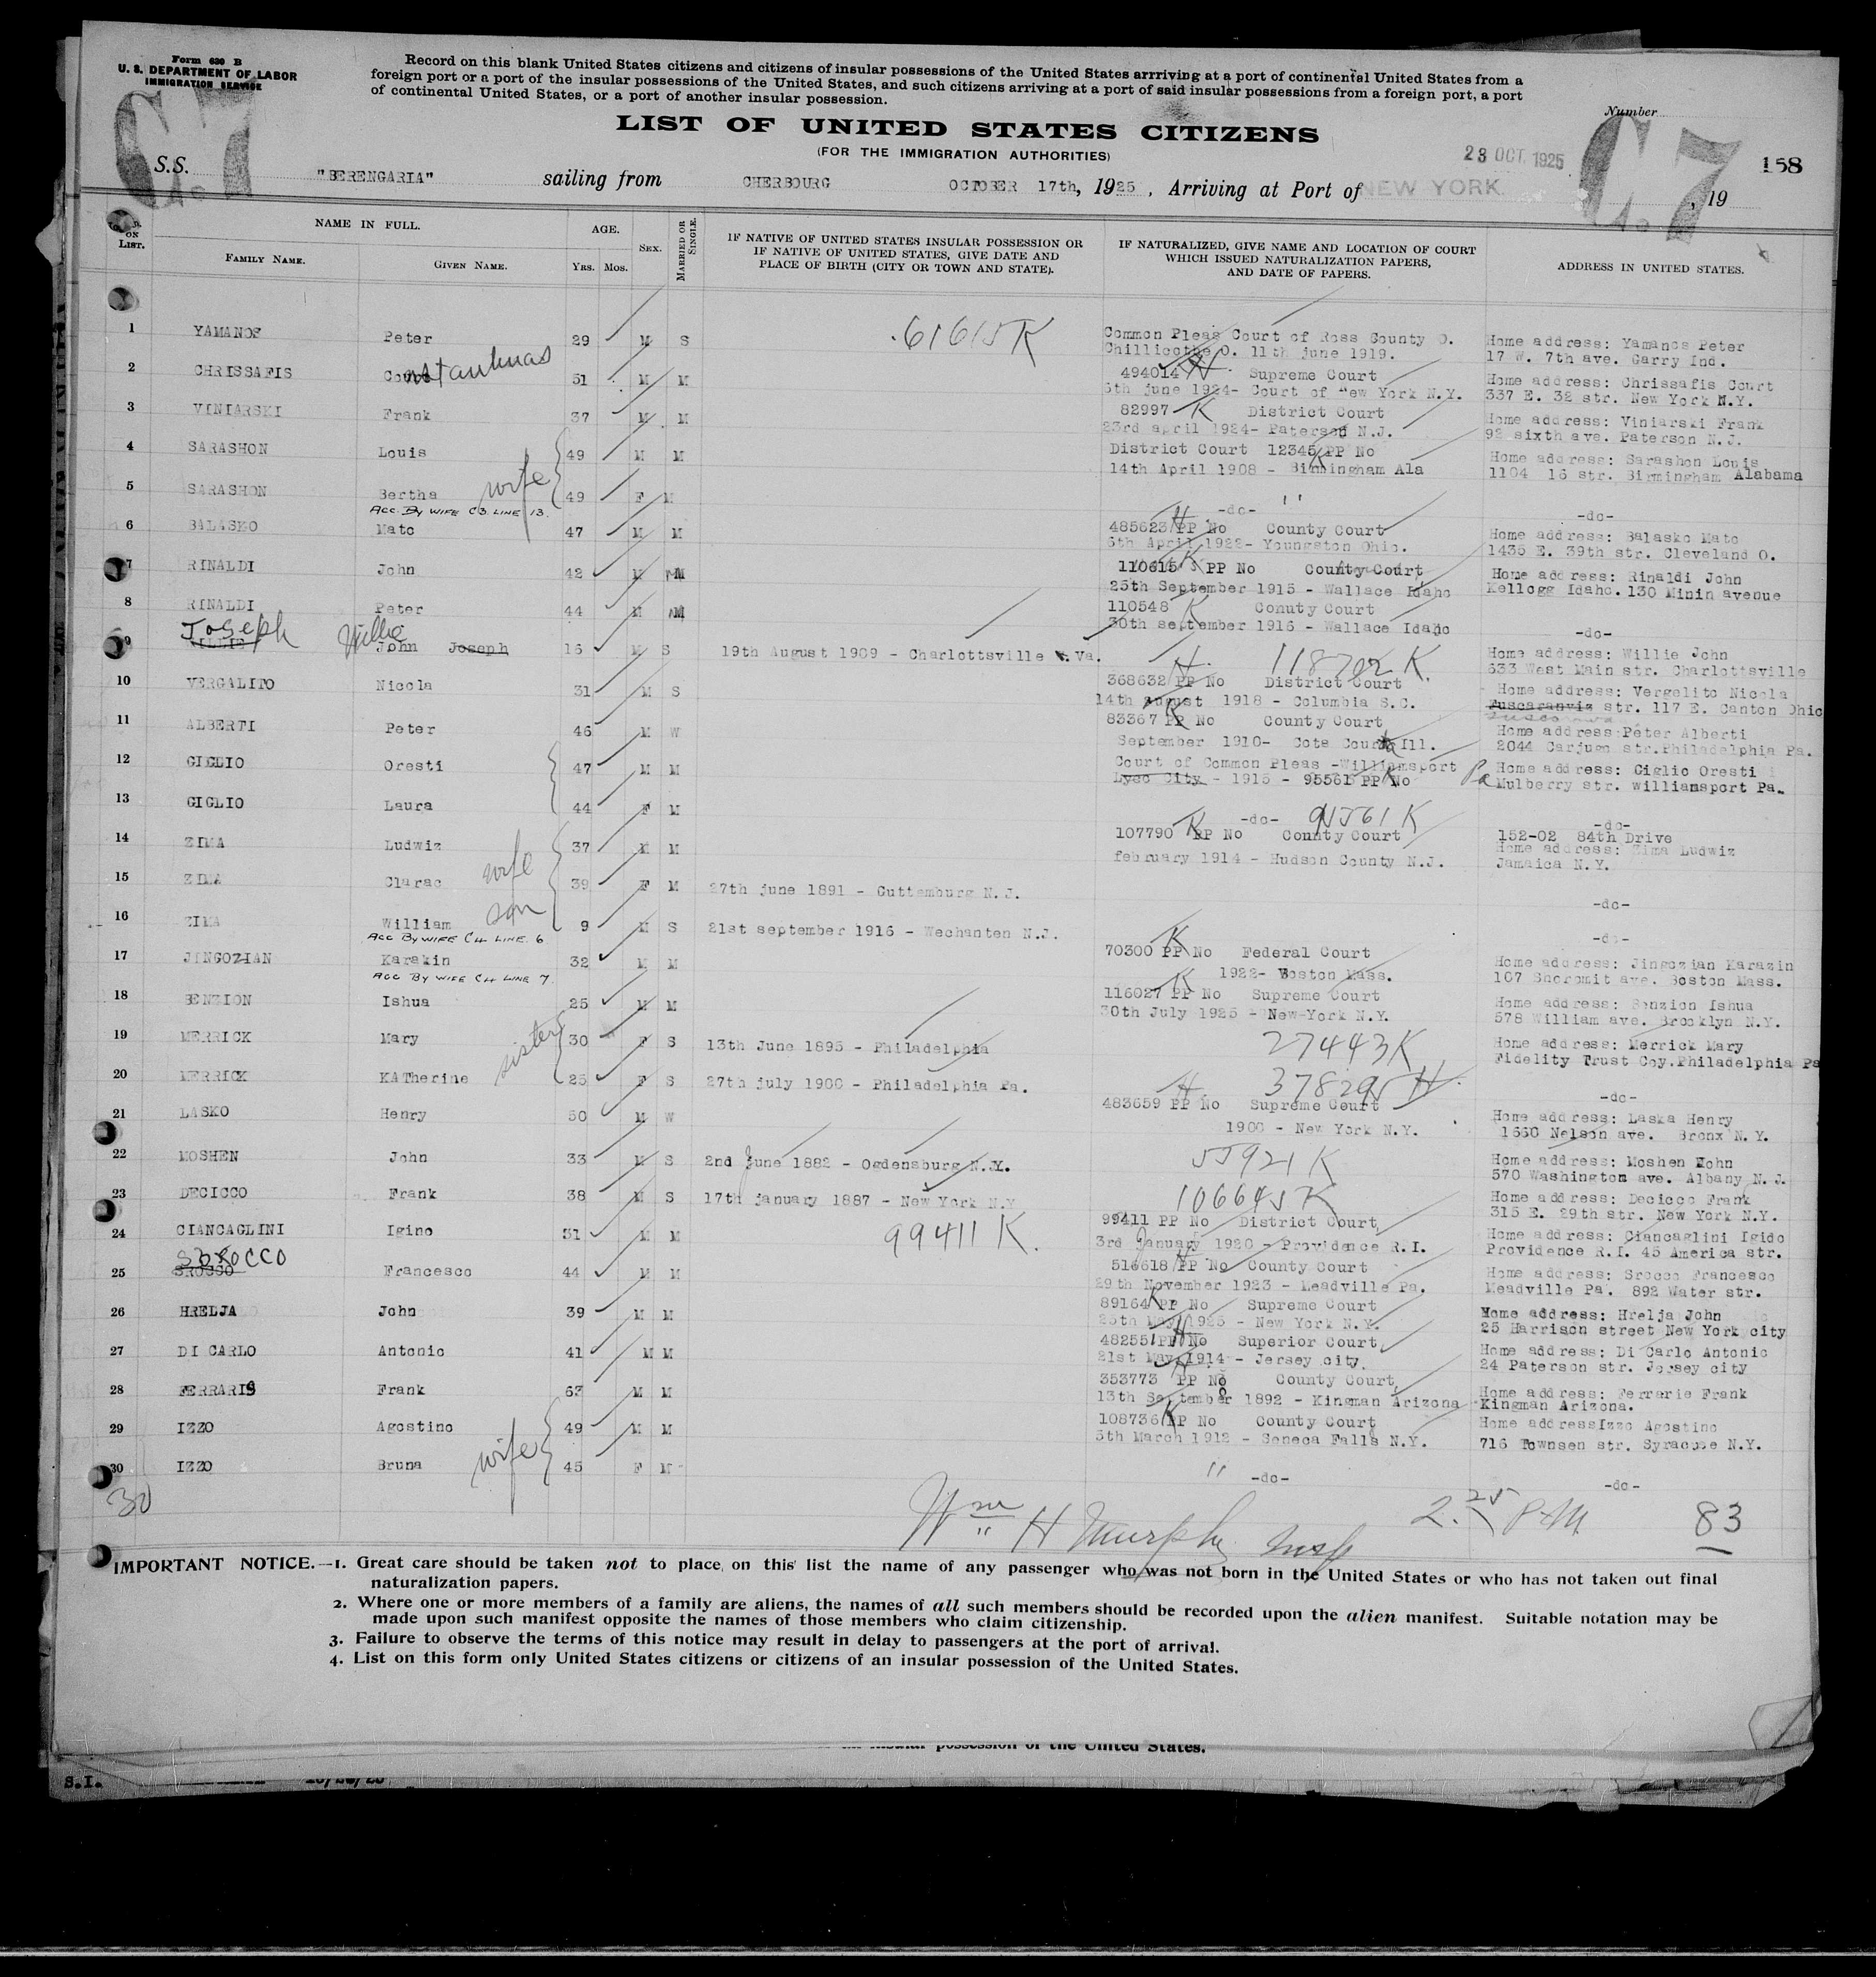 Form 630 B
U. S. DEPARTMENT OF LABOR
IMMIGRATION SERVICE
Record on this blank United States citizens and citizens of insular possessions of the United States arrriving at a port of continental United States from a
foreign port or a port of the insular possessions of the United States, and such citizens arriving at a port of said insular possessions from a foreign port, a port
of continental United States, or a port of another insular possession.
Number
C7 C7
LIST OF UNITED STATES CITIZENS
(FOR THE IMMIGRATION AUTHORITIES)
23 OCT. 1925
158
S.S. "BERENGARIA" sailing from CHERBOURG OCTOBER 17th, 1925, Arriving at Port of NEW YORK. , 19
No. ON LIST. NAME IN FULL. AGE. SEX. MARRIED OR SINGLE.
FAMILY NAME. GIVEN NAME. YRS. MOS.
IF NATIVE OF UNITED STATES INSULAR POSSESSION OR
IF NATIVE OF UNITED STATES, GIVE DATE AND
PLACE OF BIRTH (CITY OR TOWN AND STATE).
IF NATURALIZED, GIVE NAME AND LOCATION OF COURT
WHICH ISSUED NATURALIZATION PAPERS,
AND DATE OF PAPERS.
ADDRESS IN UNITED STATES.
1 YAMANOS Peter 29 M S 61615 K Common Pleas Court of Ross County O. Home address: Yamanos Peter
Chillicothe O. 11th june 1919. 17 W. 7th ave. Garry Ind.
2 CHRISSAFIS 51 M M 494014 Supreme Court Home address: Chrissafis Court
5th june 1924- Court of New York N.Y. 337 E. 32 str. New York N.Y.
3 VINIARSKI Frank 37 M M 82997 K District Court Home address: Viniarski Frank
23rd april 1924- Paterson N.J. 92 sixth ave. Paterson N.J.
4 SARASHON Louis 49 M M District Court 12345 PP No Home address: Sarashon Louis
14th April 1908 - Birmingham Ala 1104 16 str. Birmingham Alabama
5 SARASHON Bertha wife 49 F M " -do- -do-
ACC. By WIFE C3 LINE 13.
6 BALASKO Mato 47 M M 485623 PP No County Court Home address: Balasko Mato
6th April 1922- Youngston Ohio. 1435 E. 39th str. Cleveland O.
7 RINALDI John 42 M M 110615 K PP No County Court Home address: Rinaldi John
25th September 1915 - Wallace Idaho Kellogg Idaho. 130 Minin avenue
8 RINALDI Peter 44 M M 110548 K Conuty Court
30th september 1916 - Wallace Idaho -do-
9 Joseph WILLIE Willie John Joseph 16 M S 19th August 1909 - Charlottsville Va. 118702 K. Home address: Willie John
633 West Main str. Charlottsville
10 VERGALITO Nicola 31 M S 368632 PP No District Court Home address: Vergelito Nicola
14th august 1918 - Columbia S.C. Tuscaranviz str. 117 E. Canton Ohio
11 ALBERTI Peter 46 M W 83367 PP No County Court Home address Peter Alberti
September 1910- Ill. 2044 Carjuem str.Philadelphia Pa.
12 GIGLIO Oresti 47 M M Court of Common Pleas -Williamsport Home address: Giglio Oresti
Lyco City - 1915 - 95561 PP No Pa Mulberry str. williamsport Pa.
13 GIGLIO Laura 44 F M -do- 95561 K -do-
14 ZIMA Ludwiz 37 M M 107790 K PP No County Court 152-02 84th Drive
Home address: Zima Ludwiz
february 1914 - Hudson County N.J. Jamaica N.Y.
15 ZIMA Clarac wife 39 F M 27th june 1891 - Guttemburg N.J. -do-
16 ZIMA William son 9 M S 21st september 1916 - Wechanten N.J. -do-
ACC By WIFE C4 LINE 6
17 JINGOZIAN Karakin 32 M M 70300 K PP No Federal Court Home address: Jingozian Karazin
1922- Boston Mass. 107 Shoromit ave. Boston Mass.
ACC By WIFE C4 LINE 7.
18 BENZION Ishua 25 M M 116027 K PP No Supreme Court Home address: Benzion Ishua
30th July 1925 - New-York N.Y. 578 William ave. Brooklyn N.Y.
19 MERRICK Mary 30 F S 13th June 1895 - Philadelphia 27443 K Home address: Merrick Mary
Fidelity Trust Coy.Philadelphia Pa
20 MERRICK KATherine sister 25 F S 27th july 1900 - Philadelphia Pa. 378295 H. -do-
21 LASKO Henry 50 M W 483659 PP No Supreme Court Home address: Laska Henry
1900 - New York N.Y. 1660 Nelson ave. Bronx N.Y.
22 MOSHEN John 33 M S 2nd June 1882 - Ogdensburg N.Y. 55921 K Home address: Moshen John
570 Washington ave. Albany N.J.
23 DECICCO Frank 38 M S 17th january 1887 - New York N.Y 106645 K Home address: Decicco Frank
315 E. 29th str. New York N.Y.
24 CIANCAGLINI Igino 31 M M 99411 K. 99411 PP No District Court Home address: Ciancaglini Igido
3rd January 1920 - Providence R.I. Providence R.I. 45 America str.
25 SROCCO Francesco 44 M M 516618 PP No County Court Home address: Srocco Francesco
29th November 1923 - Meadville Pa. Meadville Pa. 892 Water str.
26 HRELJA John 39 M M 89164 K PP No Supreme Court Home address: Hrelja John
25th May 1925 - New York N.Y. 25 Harrison street New York city
27 DI CARLO Antonio 41 M M 48255 PP No Superior Court Home address: Di Carlo Antonio
21st May 1914 - Jersey city. 24 Paterson str. Jersey city
28 FERRARIS Frank 63 M M 353773 PP No County Court Home address: Ferrarie Frank
13th September 1892 - Kingman Arizona Kingman Arizona.
29 IZZO Agostino 49 M M 108736 K PP No County Court Home addressIzzo Agostino
5th March 1912 - Seneca Falls N.Y. 716 Townsen str. Syracose N.Y.
30 IZZO Bruna wife 45 F M " -do- -do-
30
Wm H Murphy Insp 2.25 P.M 83
IMPORTANT NOTICE.—1. Great care should be taken not to place on this list the name of any passenger who was not born in the United States or who has not taken out final
naturalization papers.
2. Where one or more members of a family are aliens, the names of all such members should be recorded upon the alien manifest. Suitable notation may be
made upon such manifest opposite the names of those members who claim citizenship.
3. Failure to observe the terms of this notice may result in delay to passengers at the port of arrival.
4. List on this form only United States citizens or citizens of an insular possession of the United States.
possession of the United States.
S.I.